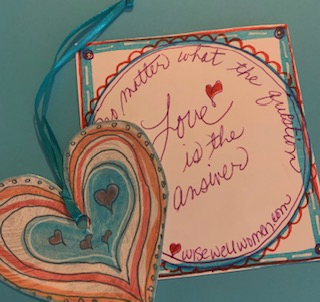 no matter what the question
Love
is the
answer
wisewellwomen.com